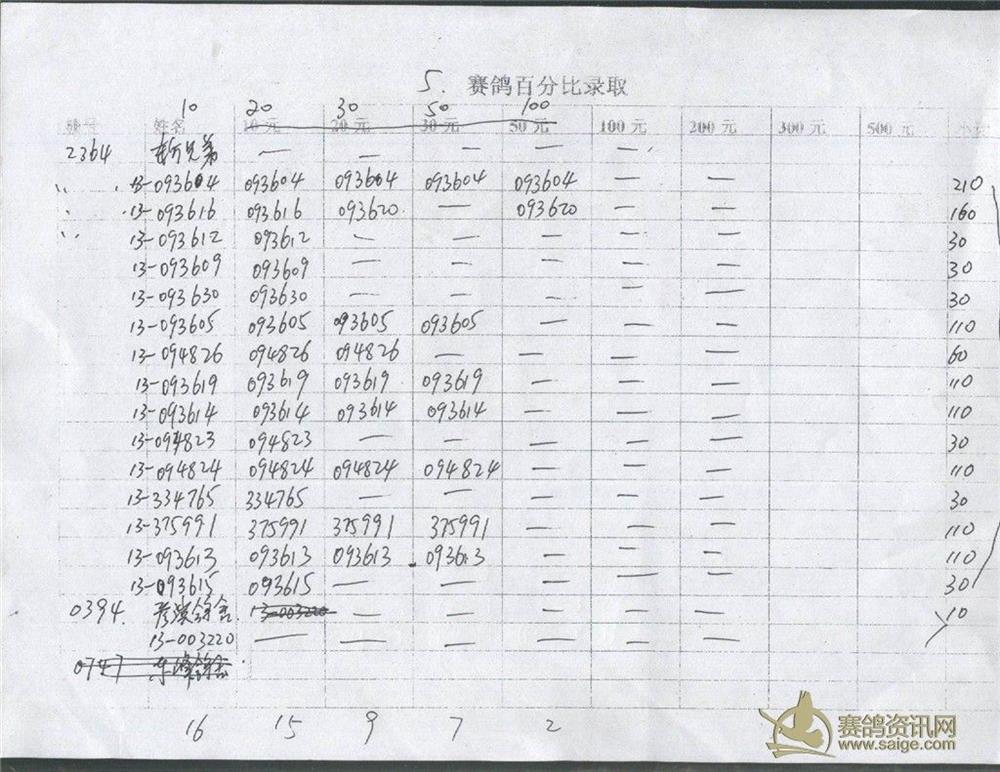 5. 赛鸽百分比录取
10 20 30 50 100
姓名 10元 20元 30元 50元 100元 200元 300元 500元
2364 兄弟 — — — — —
13-093604 093604 093604 093604 093604 — — 210
13-093616 093616 093620 — 093620 — — 160
13-093612 093612 — — — — — 30
13-093609 093609 — — — — — 30
13-093630 093630 — — — — — 30
13-093605 093605 093605 093605 — — — 110
13-094826 094826 094826 — — — — 60
13-093619 093619 093619 093619 — — — 110
13-093614 093614 093614 093614 — — — 110
13-094823 094823 — — — — — 30
13-094824 094824 094824 094824 — — — 110
13-334765 334765 — — — — — 30
13-375991 375991 375991 375991 — — — 110
13-093613 093613 093613 093613 — — — 110
13-093615 093615 — — — — — 30
0394. 鸽舍 13-003220 — — — — — 10
13-003220 — — — — — —
0747 鸽舍
16 15 9 7 2
赛鸽资讯网
www.saige.com